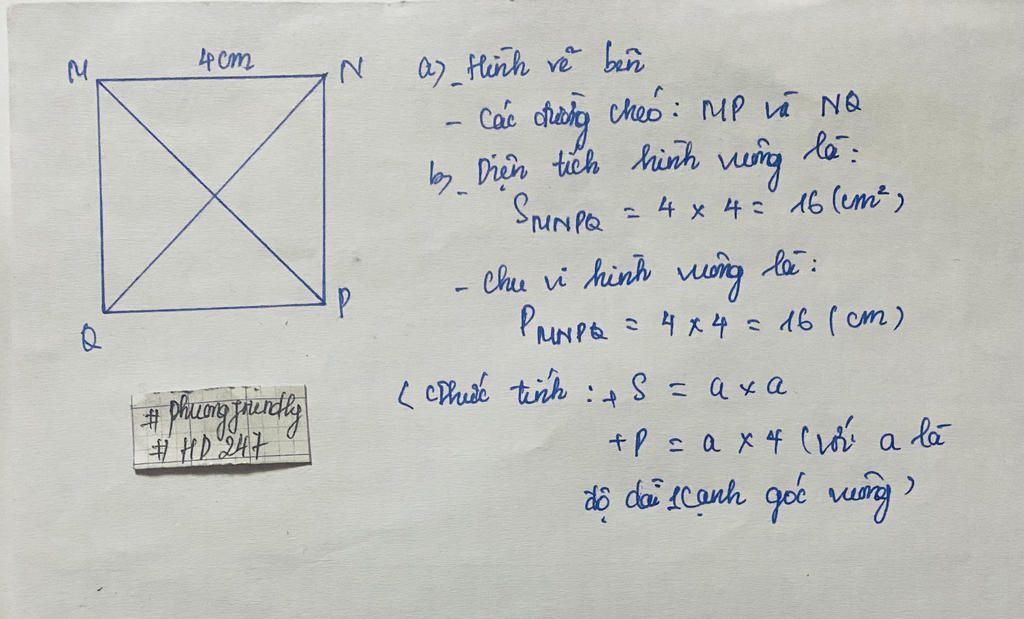 M 4cm N
Q P
# phuongfriendly
# HD 247
a) - Hình vẽ bên
- Các đường chéo: MP và NQ
b) - Diện tích hình vuông là:
S MNPQ = 4 x 4 = 16 (cm²)
- Chu vi hình vuông là:
P MNPQ = 4 x 4 = 16 (cm)
( tính : + S = a x a
+ P = a x 4 (với a là
độ dài 1 cạnh góc vuông)